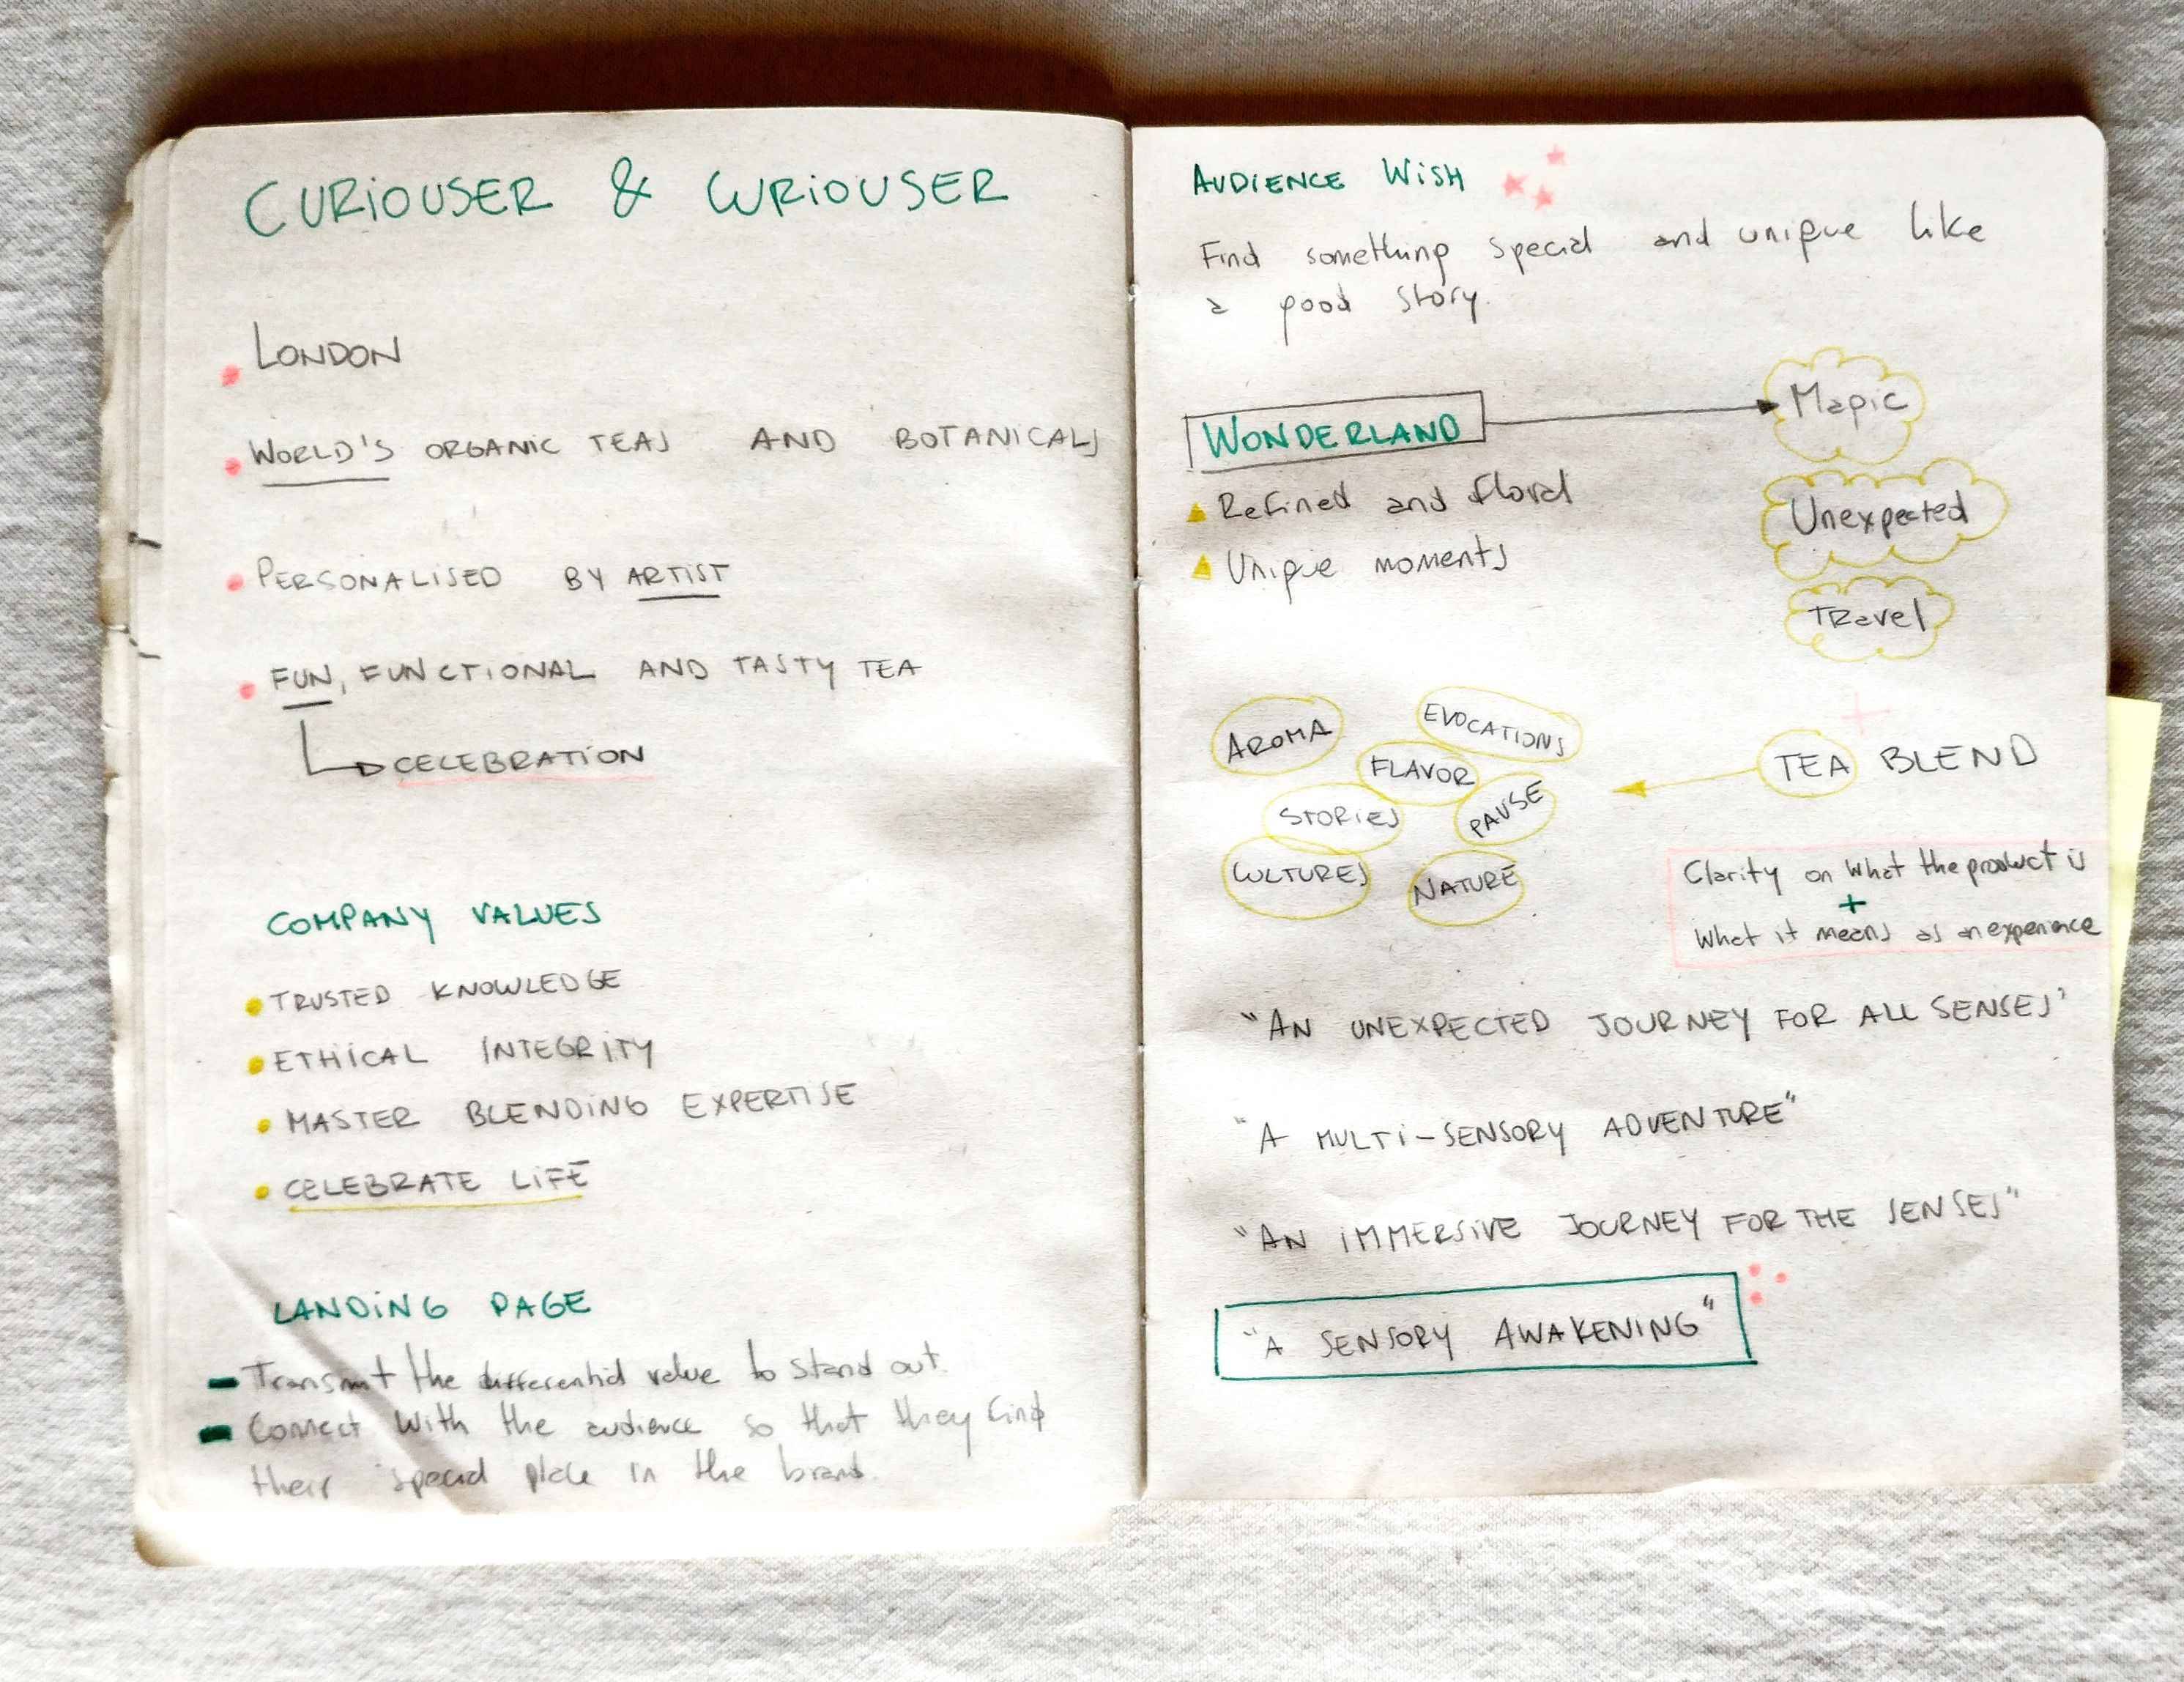 CURIOUSER & CURIOUSER
LONDON
WORLD'S ORGANIC TEAS AND BOTANICALS
PERSONALISED BY ARTIST
FUN, FUNCTIONAL AND TASTY TEA
CELEBRATION
COMPANY VALUES
TRUSTED KNOWLEDGE
ETHICAL INTEGRITY
MASTER BLENDING EXPERTISE
CELEBRATE LIFE
LANDING PAGE
Transmit the differential value to stand out.
Connect with the audience so that they find
their special place in the brand.
AUDIENCE WISH
Find something special and unique like
a good story.
WONDERLAND
Magic
Refined and floral
Unexpected
Unique moments
Travel
+
AROMA
EVOCATIONS
FLAVOR
TEA BLEND
STORIES
PAUSE
CULTURES
NATURE
Clarity on what the product is
+
What it means as an experience
"AN UNEXPECTED JOURNEY FOR ALL SENSES"
"A MULTI-SENSORY ADVENTURE"
"AN IMMERSIVE JOURNEY FOR THE SENSES"
"A SENSORY AWAKENING"